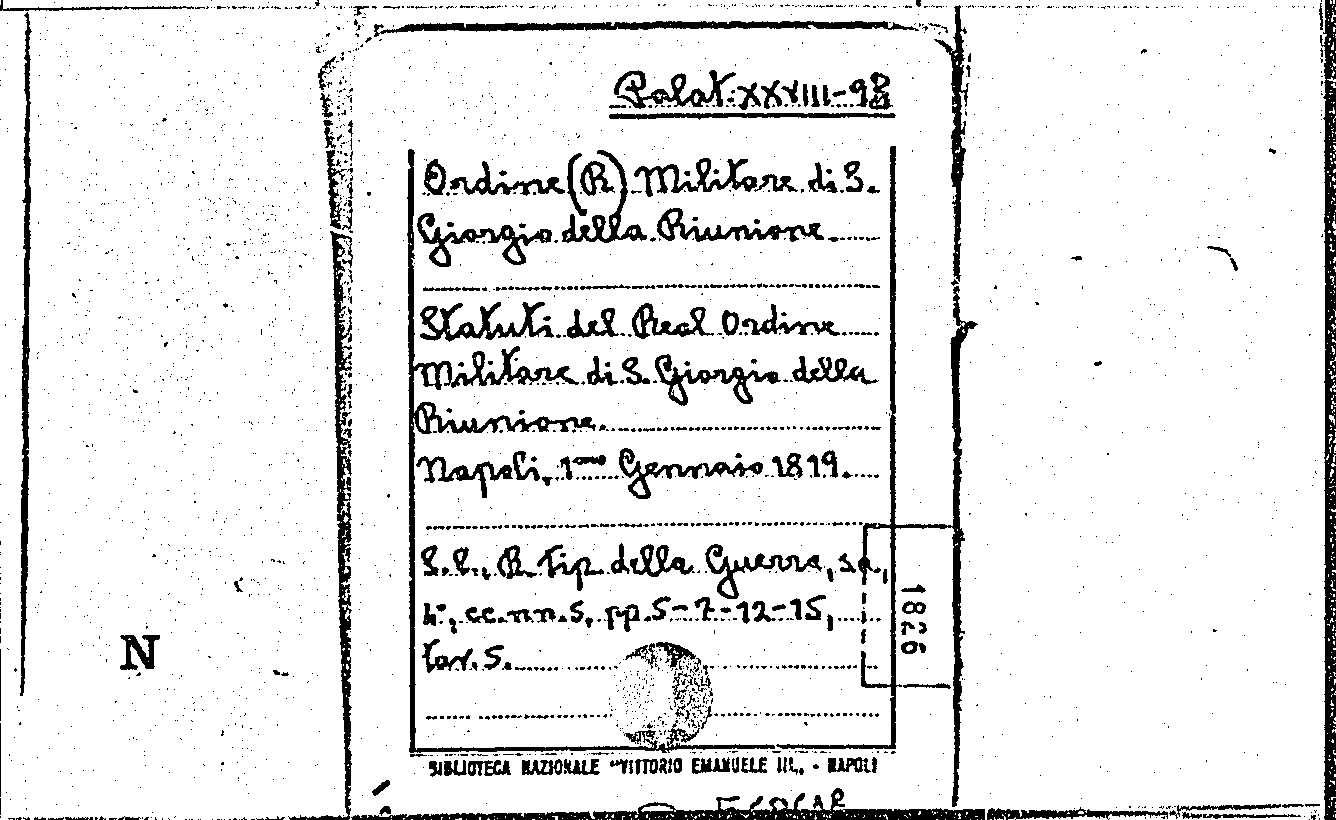 Palat. XXVIII-98
Ordine (R) Militare di S.
Giorgio della Riunione.
Statuti del Real Ordine
Militare di S. Giorgio della
Riunione.
Napoli, 1mo Gennaio 1819.
S.l., R. Tip. della Guerra, s.a.,
4°, cc.nn.5, pp.5-7-12-15,
tav.5.
1826
N
BIBLIOTECA NAZIONALE "VITTORIO EMANUELE III„ - NAPOLI